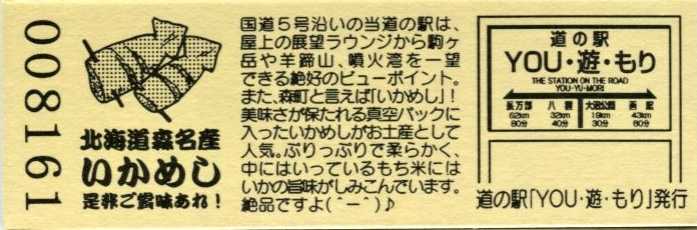 008161
北海道森名産
いかめし
是非ご賞味あれ!
国道5号沿いの当道の駅は、
屋上の展望ラウンジから駒ヶ
岳や羊蹄山、噴火湾を一望
できる絶好のビューポイント。
また、森町と言えば「いかめし」!
美味さが保たれる真空パックに
入ったいかめしがお土産として
人気。ぷりっぷりで柔らかく、
中にはいっているもち米には
いかの旨味がしみこんでいます。
絶品ですよ(^ー^)♪
道の駅
YOU・遊・もり
THE STATION ON THE ROAD
YOU-YU-MORI
長万部 八雲 大沼公園 函館
62km 32km 19km 43km
80分 40分 30分 60分
道の駅「YOU・遊・もり」発行